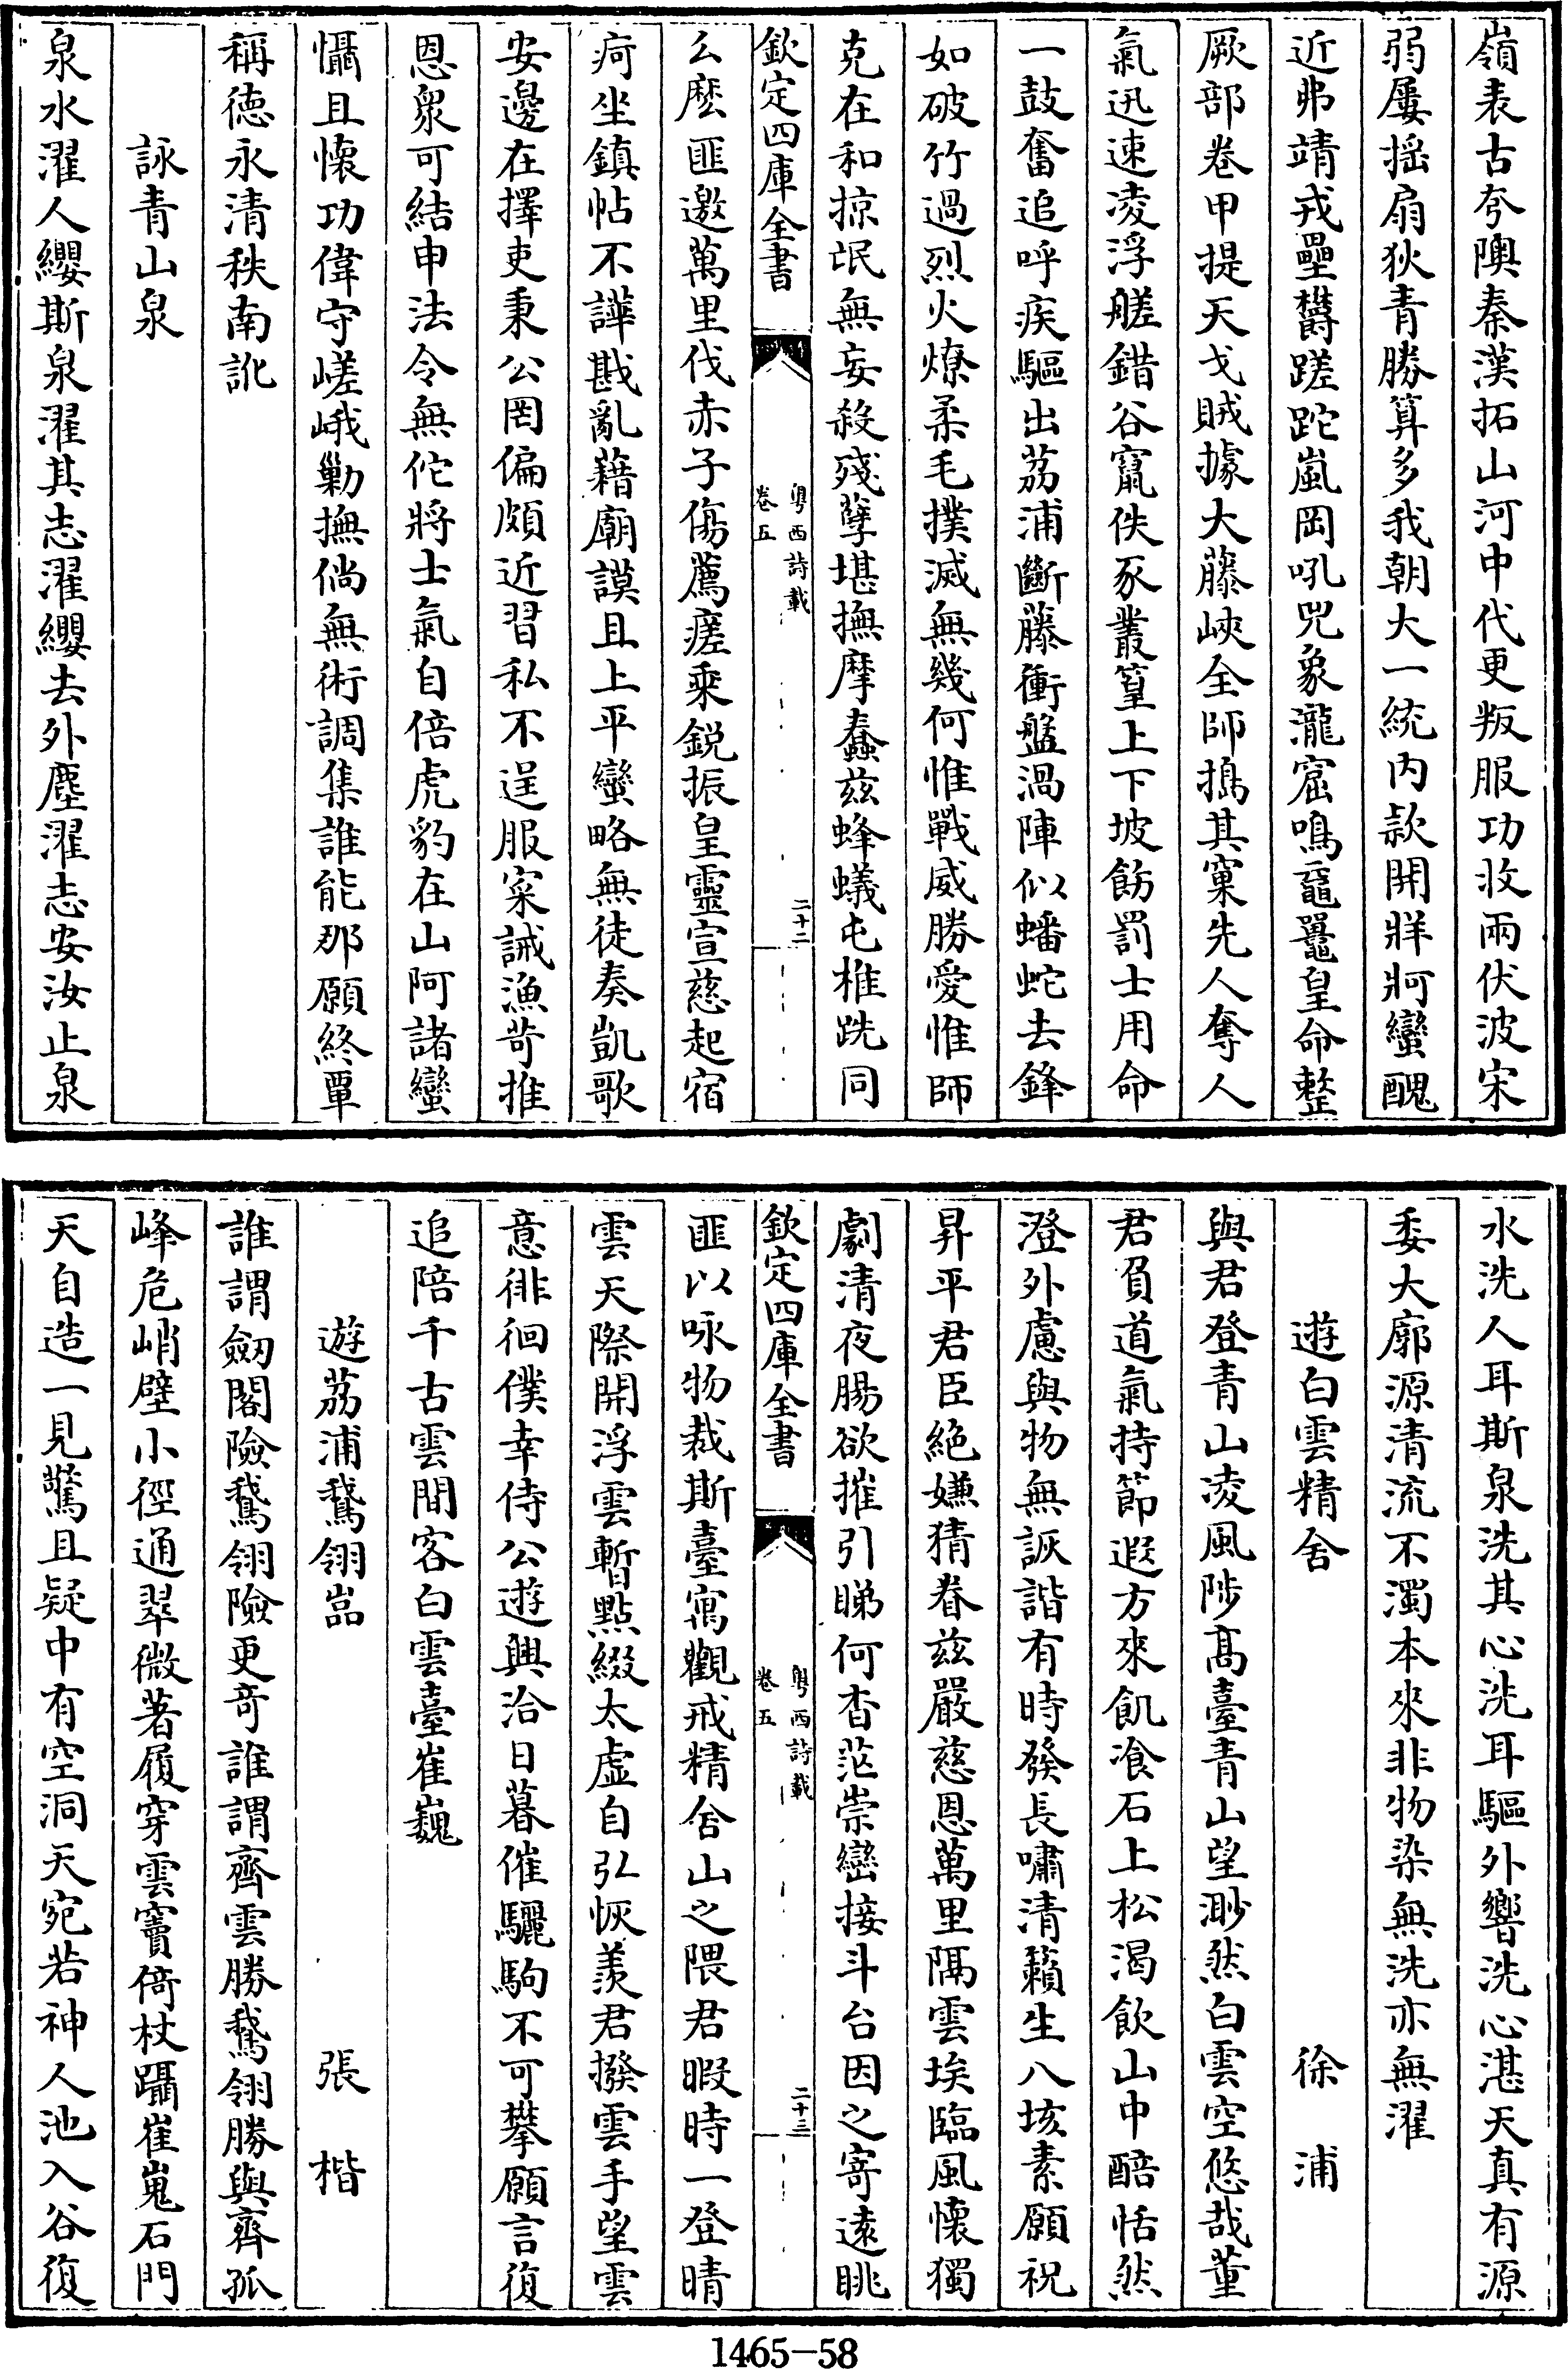 嶺表古夸隩秦漢拓山河中代更叛服功收兩伏波宋
弱屢揺扇狄青勝算多我朝大一統内款開牂牁蠻醜
近弗靖戎壘欝蹉跎嵐岡吼兕象瀧窟鳴黿鼉皇命整
厥部卷甲提天戈賊據大藤峽全師搗其窠先人奪人
氣迅速凌浮艖錯谷竄佚豕叢篁上下坡飭罰士用命
一鼓奮追呼疾驅出荔浦斷藤衝盤渦陣似蟠蛇去鋒
如破竹過烈火燎柔毛撲滅無幾何惟戰威勝愛惟師
克在和掠氓無妄殺殘孽堪撫摩蠢兹蜂蟻屯椎跣同
欽定四庫全書
粤西詩載
卷五
二十二
么麽匪邀萬里伐赤子傷薦瘥乘鋭振皇靈宣慈起宿
疴坐鎮帖不譁戡亂藉廟謨且上平蠻略無徒奏凱歌
安邊在擇吏秉公罔偏頗近習私不逞服寀誡漁苛推
恩衆可結申法令無佗將士氣自倍虎豹在山阿諸蠻
懾且懷功偉守嵯峨勦撫倘無術調集誰能那願終覃
稱德永清秩南訛
詠青山泉
泉水濯人纓斯泉濯其志濯纓去外塵濯志安汝止泉
水洗人耳斯泉洗其心洗耳驅外響洗心湛天真有源
委大廓源清流不濁本來非物染無洗亦無濯
遊白雲精舍 徐浦
與君登青山凌風陟髙臺青山望渺然白雲空悠哉董
君負道氣持節遐方來飢飡石上松渴飲山中醅恬然
澄外慮與物無詼諧有時發長嘯清籟生八垓素願祝
昇平君臣絶嫌猜眷兹嚴慈恩萬里隔雲埃臨風懷獨
劇清夜腸欲摧引睇何杳茫崇巒接斗台因之寄遠眺
欽定四庫全書
粤西詩載
卷五
二十三
匪以咏物裁斯臺寓觀戒精舍山之隈君暇時一登晴
雲天際開浮雲暫點綴太虚自弘恢羨君撥雲手望雲
意徘徊僕幸侍公遊興洽日暮催驪駒不可攀願言復
追陪千古雲間客白雲臺崔巍
遊荔浦鵞翎嵓 張楷
誰謂劒閣險鵞翎險更奇誰謂齊雲勝鵞翎勝與齊孤
峰危峭壁小徑通翠微著履穿雲竇倚杖躡崔嵬石門
天自造一見驚且疑中有空洞天宛若神人池入谷復
1465-58